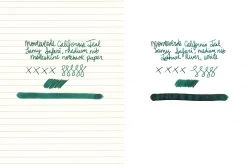 Monteverde California Teal
Lamy Safari, medium nib
moleskine notebook paper
xxxx
Monteverde California Teal
Lamy Safari, medium nib
Tomoe River, white
xxxx